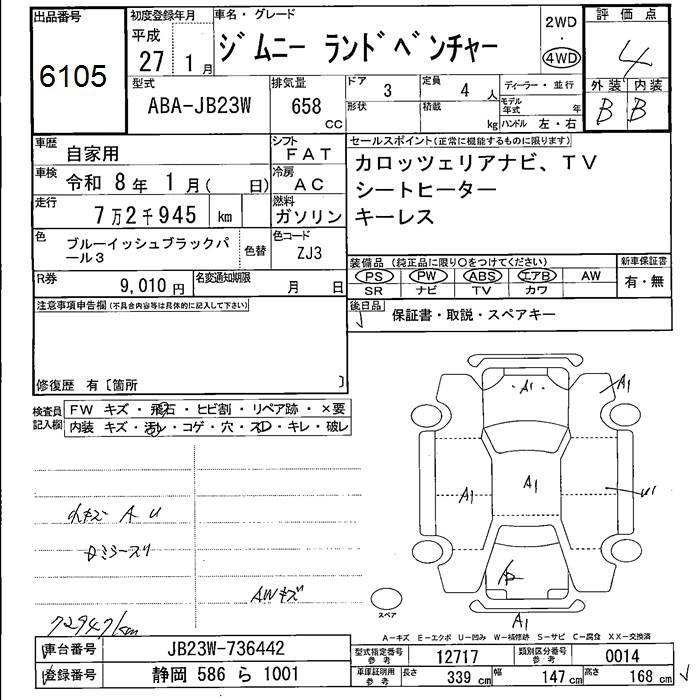 出品番号
6105
初度登録年月
平成
27 1月
車名・グレード
ジムニー ランドベンチャー
2WD
・
4WD
評価点
4
外装 内装
B B
型式
ABA-JB23W
排気量
658
CC
ドア
3
定員
4 人
形状
積載
kg
ディーラー・並行
モデル年式 年
ハンドル 左・右
車歴
自家用
シフト
FAT
車検
令和 8年 1月( 日)
冷房
AC
走行
7万2千945 km
燃料
ガソリン
色
ブルーイッシュブラックパール3
色替
色コード
ZJ3
R券
9,010円
名変通知期限
月 日
セールスポイント(正常に機能するものに限ります)
カロッツェリアナビ、TV
シートヒーター
キーレス
装備品(純正品に限り○をつけてください)
PS PW ABS エアB AW
SR ナビ TV カワ
新車保証書
有・無
後日品
保証書・取説・スペアキー
注意事項申告欄(不具合内容等は具体的に記入して下さい)
修復歴 有〔箇所 〕
検査員記入欄
FW キズ・飛石・ヒビ割・リペア跡・×要
内装 キズ・汚レ・コゲ・穴・スレ・キレ・破レ
A U
AWキズ
72947km
A1
A1
A1
A1
A1
スペア
A-キズ E-エクボ U-凹み W-補修跡 S-サビ C-腐食 XX-交換済
車台番号
JB23W-736442
登録番号
静岡 586 ら 1001
型式指定番号
参考
12717
類別区分番号
参考
0014
車庫証明用
参考
長さ
339 cm
幅
147 cm
高さ
168 cm